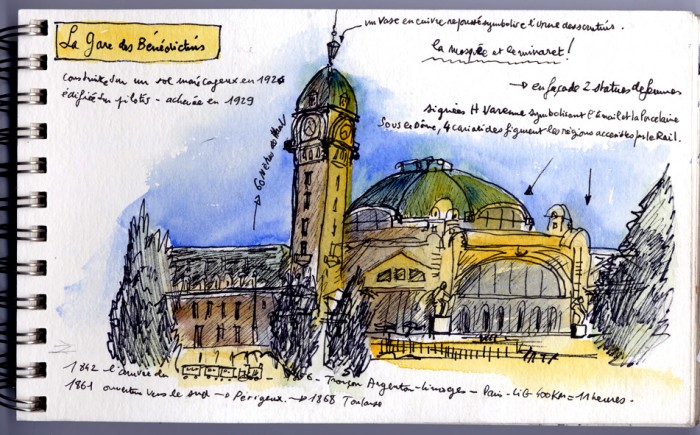 La Gare des Bénédictins
un vase en cuivre repoussé symbolise l'urne des scrutins.
la mosquée et le minaret !
construite sur un sol marécageux en 1926
édifiée sur pilotis - achevée en 1929
en façade 2 statues de femmes
signées H Varenne symbolisent l'Email et la Porcelaine
Sous le Dôme, 4 cariatides figurent les régions accessibles par le Rail.
60 mètres de haut
1842 l'arrivée du - Tronçon Argenton-Limoges - Paris - LiG 400Km = 11 heures.
1861 ouverture vers le sud → Périgueux. → 1868 Toulouse